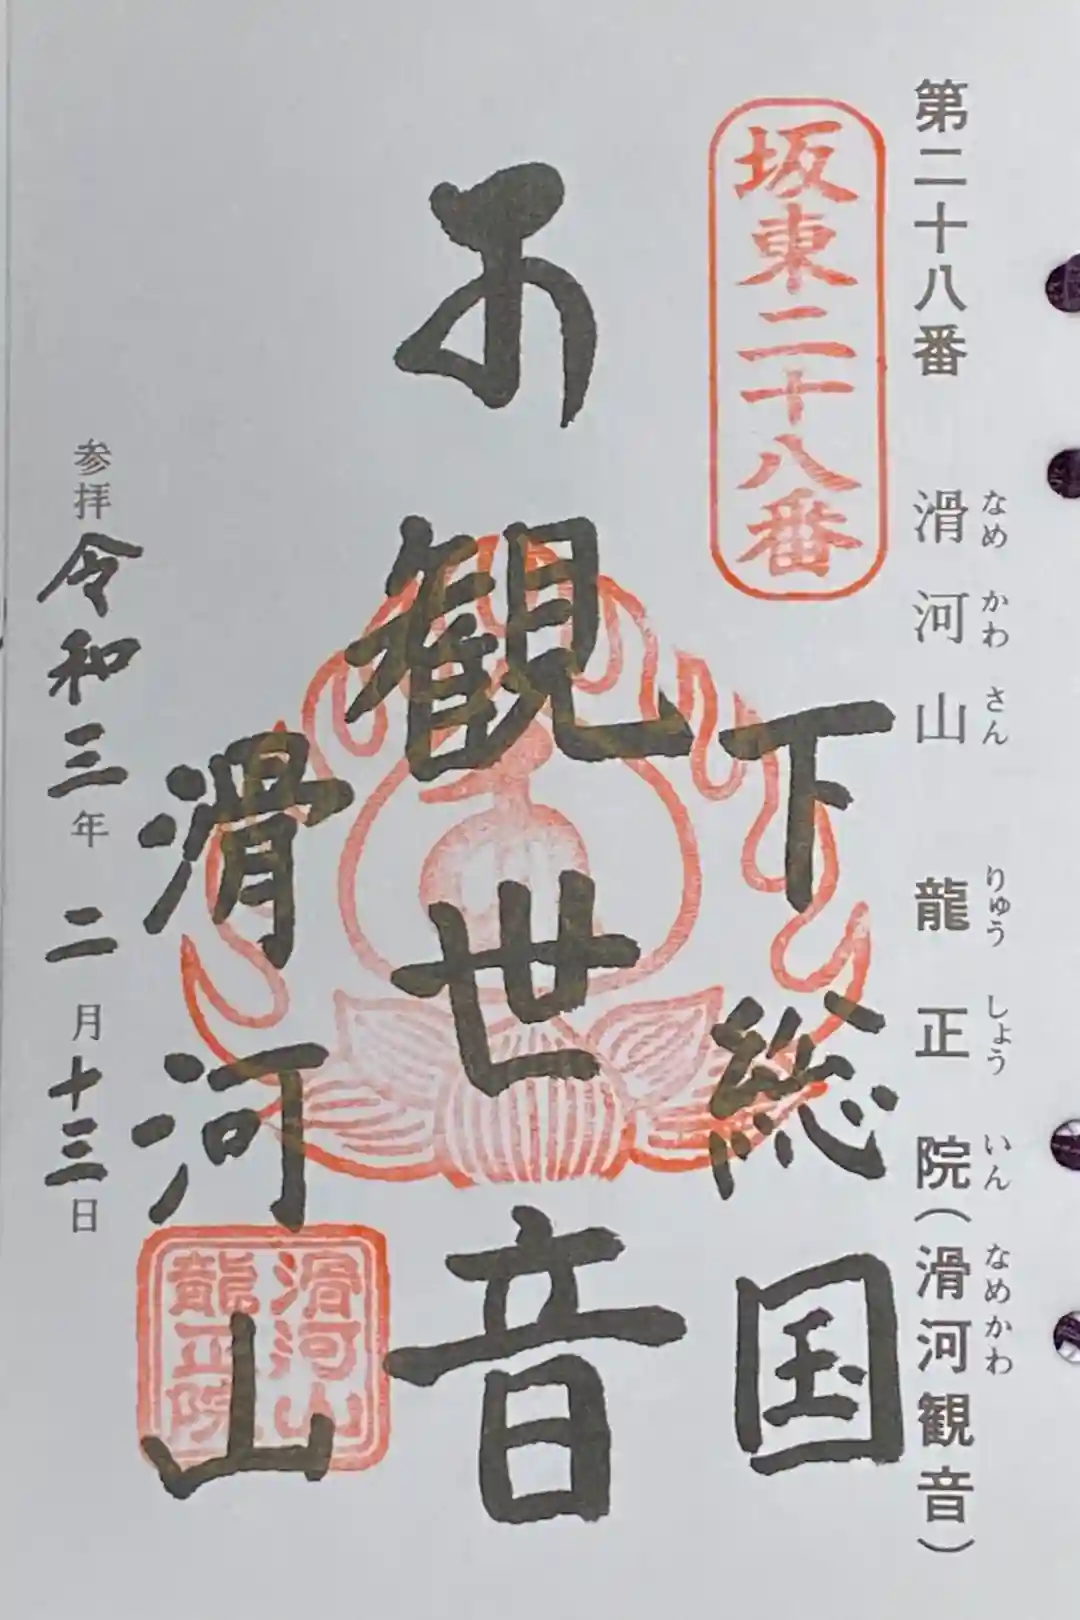 第二十八番 滑河山 龍正院(滑河観音)
なめ かわ さん りゅう しょう いん なめかわ
坂東二十八番
下総国
観世音
滑河山
滑河山
龍正院
参拝 令和三年 二月十三日